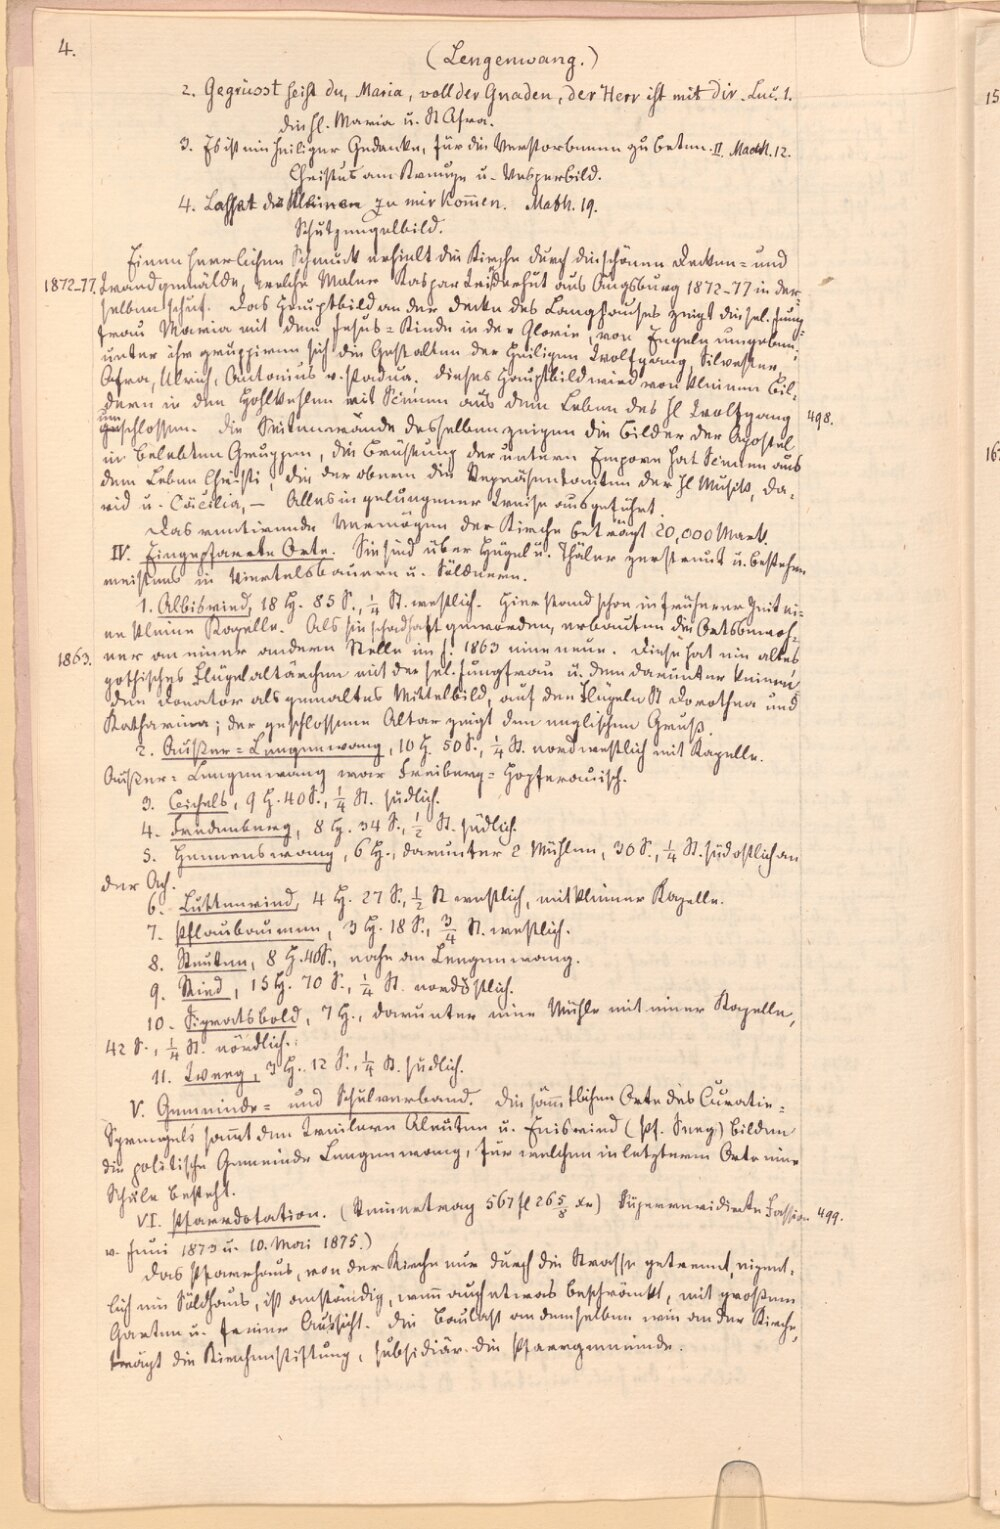 4.
(Lengenwang.)
2. Gegrüsst seist du, Maria, voll der Gnaden, der Herr ist mit Dir. Luc. 1.
die hl. Maria u. St Afra.
3. Es ist ein heiliger Gedanke, für die Verstorbenen zu beten. II. Mach. 12.
Christus am Kreuze u. Vesperbild.
4. Lasset die Kleinen zu mir kommen. Math. 19.
Schutzengelbild.
Einen herrlichen Schmuck erhielt die Kirche durch die schönen Decken= und
1872-77. Wandgemälde, welche Maler Kaspar aus Augsburg 1872-77 in der=
selben schuf. Das Hauptbild an der Decke des Langhauses zeigt die sel. Jung=
frau Maria mit dem Jesus=Kinde in der Glorie, von Engeln umgeben;
unter ihr gruppiren sich die Gestalten der heiligen Wolfgang, Silvester,
Afra, Ulrich, Antonius v. Padua. Dieses Hauptbild wird von kleinen Bil=
dern in den Hohlkehlen mit Scenen aus dem Leben des hl Wolfgang 498.
umschlossen. Die Seitenwände desselben zeigen die Bilder der Apostel
in belebten Gruppen, die Brüstung der untern Empore hat Scenen aus
dem Leben Christi, die der obern die Repräsentanten der hl Musik, Da=
vid u. Cäcilia, — Alles in gelungener Weise ausgeführt.
Das rentirende Vermögen der Kirche beträgt 20,000 Mark.
IV. Eingepfarrte Orte. Sie sind über Hügel u. Thäler zerstreut u. bestehen
meistens in Viertelsbauern u. Söldnern.
1. Albisried, 18 H. 85 S., 1/4 St. westlich. Hier stand schon in früherer Zeit ei=
ne kleine Kapelle. Als sie schadhaft geworden, erbauten die Ortsbewoh=
1863. ner an einer andern Stelle im J. 1863 eine neue. Diese hat ein altes
gothisches Flügelaltärchen mit der sel. Jungfrau u. dem darunter knieen=
den Donator als gemaltes Mittelbild, auf den Flügeln St Dorothea und
Katharina; der geschlossene Altar zeigt den englischen Gruß.
2. Außer=Lengenwang, 10 H. 50 S., 1/4 St. nordwestlich mit Kapelle.
Außer=Lengenwang war Freiberg=Hopferauisch.
3. Bichels, 9 H. 40 S., 1/4 St. südlich.
4. Fredenberg, 8 H. 34 S., 1/2 St. südlich.
5. Hennenswang, 6 H., darunter 2 Mühlen, 30 S., 1/4 St. südostlich an
der Ach.
6. Luttenried, 4 H. 27 S., 1/2 St westlich, mit kleiner Kapelle.
7. Pflaubaumen, 3 H. 18 S., 3/4 St. westlich.
8. Reuten, 8 H. 40 S., nahe an Lengenwang.
9. Ried, 15 H. 70 S., 1/4 St. nordöstlich.
10. Sigratsbold, 7 H., darunter eine Mühle mit einer Kapelle,
42 S., 1/4 St. nördlich.
11. Weeg, 3 H. 12 S., 1/4 St. südlich.
V. Gemeinde= und Schulverband. Die sämmtlichen Orte des Curatie=
Sprengels sammt den Weilern Aleuten u. Eniswind (Pf. Seeg) bilden
die politische Gemeinde Lengenwang, für welchen in letzterem Orte eine
Schule besteht.
VI. Pfarrdotation. (Reinertrag 567 fl 26 5/8 xr) Superrevidirte Fassion 499.
v. Juni 1873 u. 10. Mai 1875.)
Das Pfarrhaus, von der Kirche nur durch die Strasse getrennt, eigent=
lich ein Söldhaus, ist anständig, wenn auch etwas beschränkt, mit großem
Garten u. ferner Aussicht. Die Baulast an demselben wie an der Kirche,
trägt die Kirchenstiftung, subsidiär die Pfarrgemeinde.
15
16